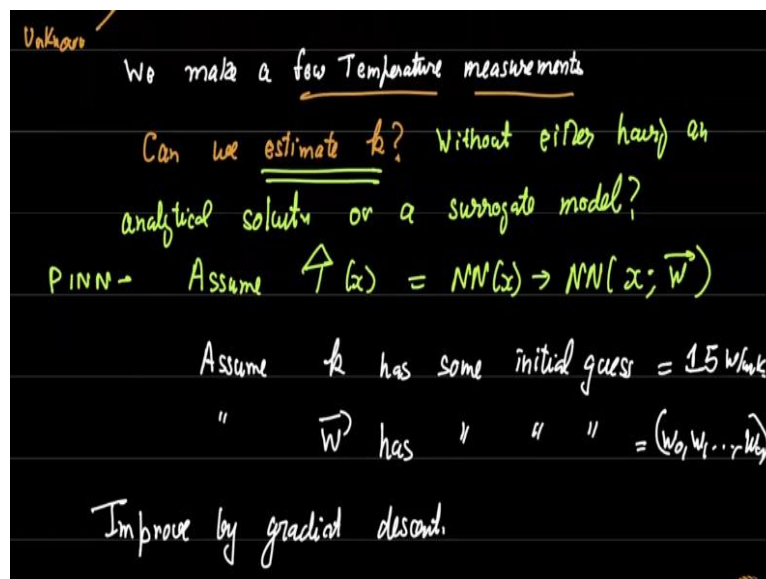 Unknown
We make a few Temperature measurements
Can we estimate k? Without either having an
analytical solutn or a surrogate model?
PINN- Assume T̂(x) = NN(x) → NN(x; w⃗)
Assume k has some initial guess = 15 W/mK
" w⃗ has " " " = (w₀, w₁..., w
Improve by gradient descent.